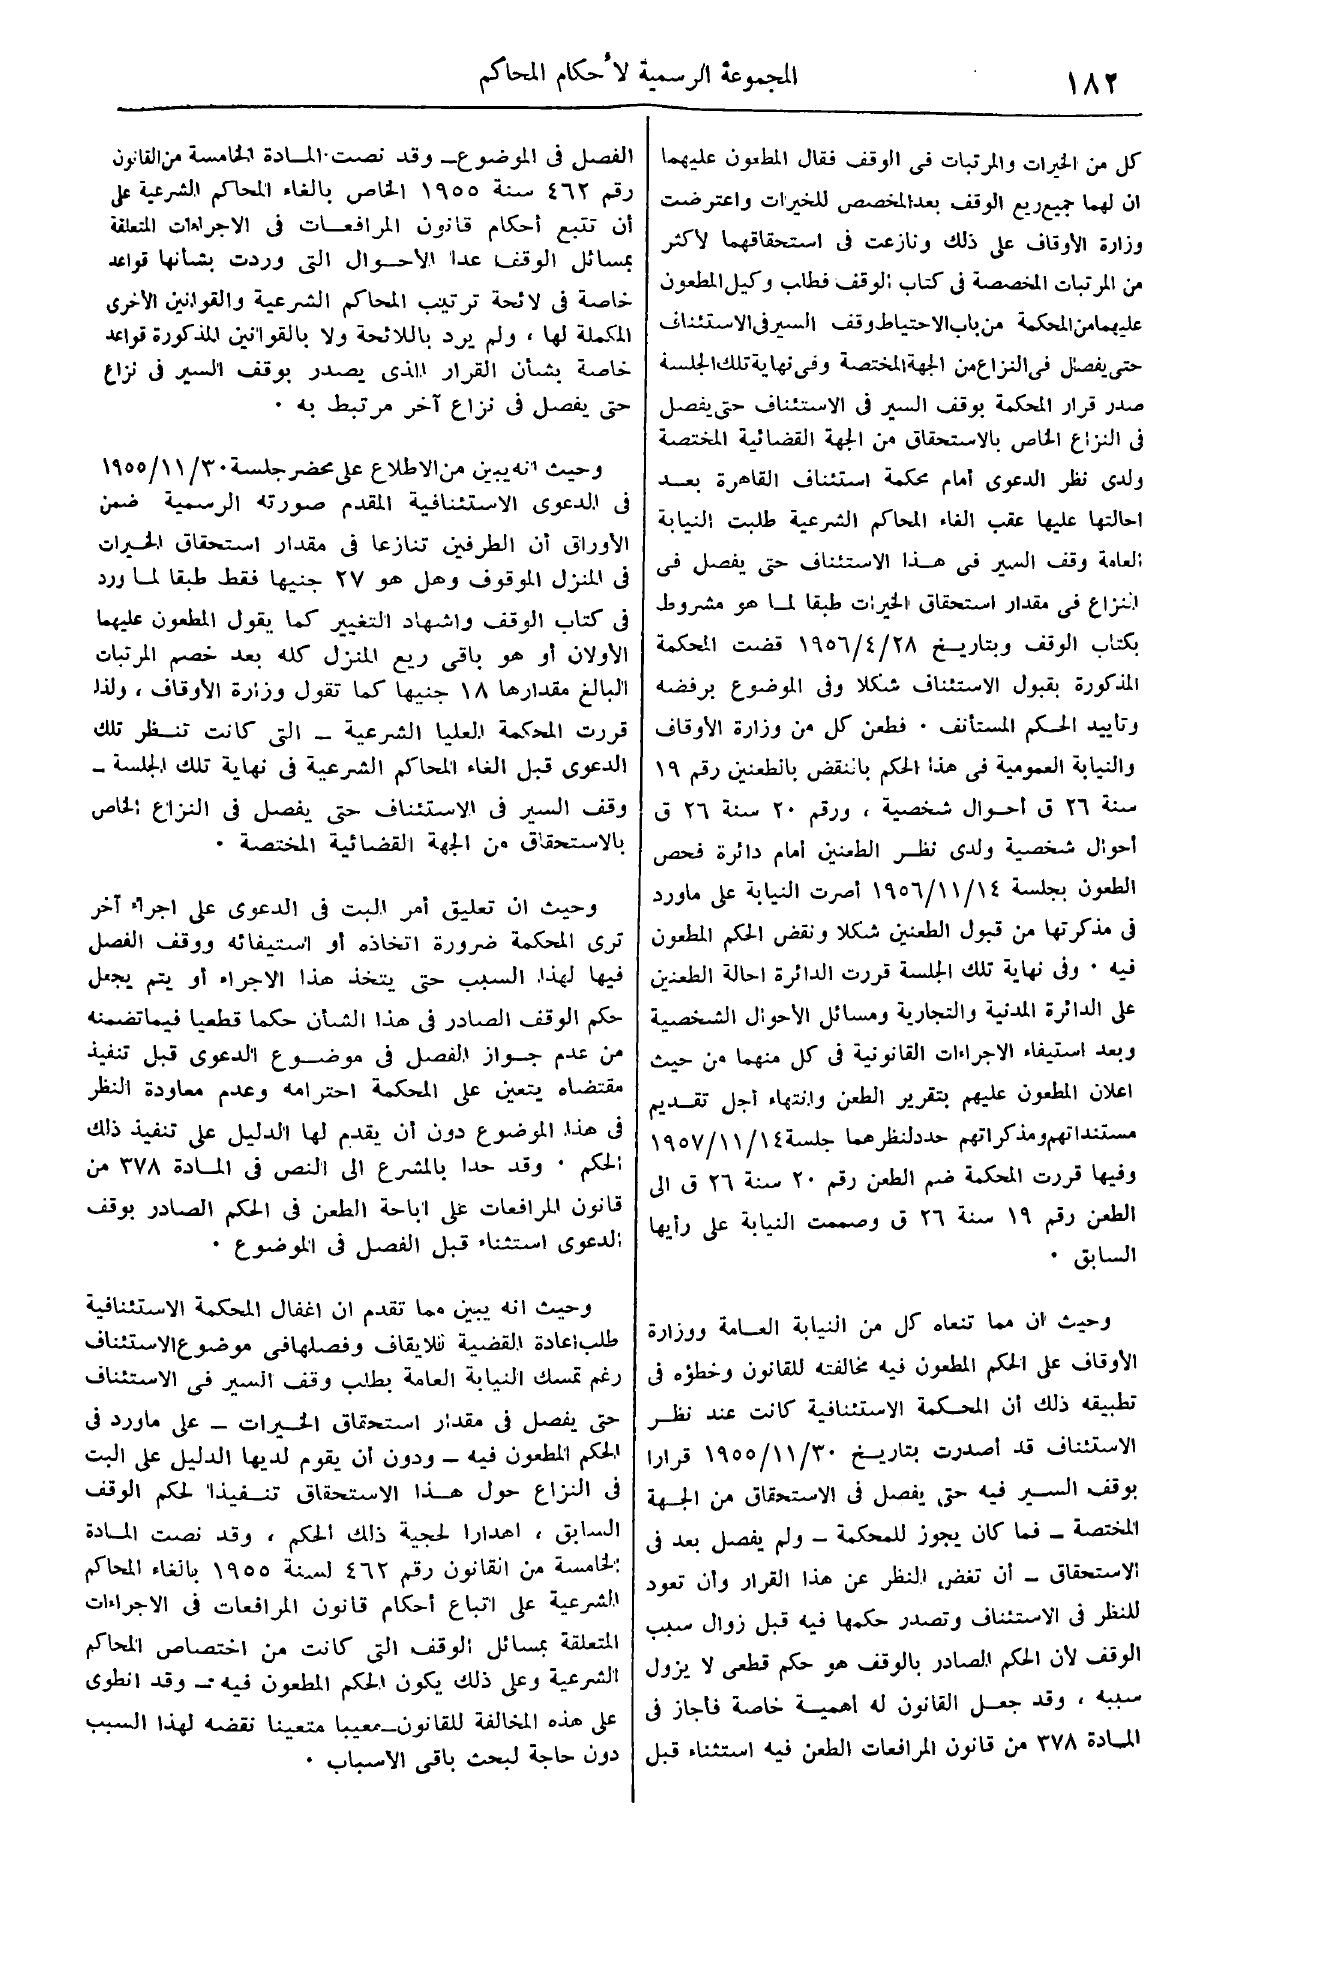 ١٨٢
المجموعة الرسمية لأحكام المحاكم
كل من الخيرات والمرتبات فى الوقف فقال المطعون عليهما
ان لهما جميع ريع الوقف بعد المخصص للخيرات واعترضت
وزارة الأوقاف على ذلك ونازعت فى استحقاقهما لأكثر
من المرتبات المخصصة فى كتاب الوقف فطلب وكيل المطعون
عليهما من المحكمة من باب الاحتياط وقف السير فى الاستئناف
حتى يفصل فى النزاع من الجهة المختصة وفى نهاية تلك الجلسة
صدر قرار المحكمة بوقف السير فى الاستئناف حتى يفصل
فى النزاع الخاص بالاستحقاق من الجهة القضائية المختصة
ولدى نظر الدعوى أمام محكمة استئناف القاهرة بعد
احالتها عليها عقب الغاء المحاكم الشرعية طلبت النيابة
العامة وقف السير فى هذا الاستئناف حتى يفصل فى
النزاع فى مقدار استحقاق الخيرات طبقا لما هو مشروط
بكتاب الوقف وبتاريخ ١٩٥٦/٤/٢٨ قضت المحكمة
المذكورة بقبول الاستئناف شكلا وفى الموضوع برفضه
وتأييد الحكم المستأنف ٠ فطعن كل من وزارة الأوقاف
والنيابة العمومية فى هذا الحكم بالنقض بالطعنين رقم ١٩
سنة ٢٦ ق أحوال شخصية ، ورقم ٢٠ سنة ٢٦ ق
أحوال شخصية ولدى نظر الطعنين أمام دائرة فحص
الطعون بجلسة ١٩٥٦/١١/١٤ أصرت النيابة على ماورد
فى مذكرتها من قبول الطعنين شكلا ونقض الحكم المطعون
فيه ٠ وفى نهاية تلك الجلسة قررت الدائرة احالة الطعنين
على الدائرة المدنية والتجارية ومسائل الأحوال الشخصية
وبعد استيفاء الاجراءات القانونية فى كل منهما من حيث
اعلان المطعون عليهم بتقرير الطعن وانتهاء أجل تقديم
مستنداتهم ومذكراتهم حدد لنظرهما جلسة ١٩٥٧/١١/١٤
وفيها قررت المحكمة ضم الطعن رقم ٢٠ سنة ٢٦ ق الى
الطعن رقم ١٩ سنة ٢٦ ق وصممت النيابة على رأيها
السابق ٠
وحيث ان مما تنعاه كل من النيابة العامة ووزارة
الأوقاف على الحكم المطعون فيه مخالفته للقانون وخطؤه فى
تطبيقه ذلك أن المحكمة الاستئنافية كانت عند نظر
الاستئناف قد أصدرت بتاريخ ١٩٥٥/١١/٣٠ قرارا
بوقف السير فيه حتى يفصل فى الاستحقاق من الجهة
المختصة – فما كان يجوز للمحكمة – ولم يفصل بعد فى
الاستحقاق – أن تغض النظر عن هذا القرار وأن تعود
للنظر فى الاستئناف وتصدر حكمها فيه قبل زوال سبب
الوقف لأن الحكم الصادر بالوقف هو حكم قطعى لا يزول
سببه ، وقد جعل القانون له أهمية خاصة فأجاز فى
المادة ٣٧٨ من قانون المرافعات الطعن فيه استثناء قبل
الفصل فى الموضوع – وقد نصت المادة الخامسة من القانون
رقم ٤٦٢ سنة ١٩٥٥ الخاص بالغاء المحاكم الشرعية على
أن تتبع أحكام قانون المرافعات فى الاجراءات المتعلقة
بمسائل الوقف عدا الأحوال التى وردت بشأنها قواعد
خاصة فى لائحة ترتيب المحاكم الشرعية والقوانين الأخرى
المكملة لها ، ولم يرد باللائحة ولا بالقوانين المذكورة قواعد
خاصة بشأن القرار الذى يصدر بوقف السير فى نزاع
حتى يفصل فى نزاع آخر مرتبط به ٠
وحيث انه يبين من الاطلاع على محضر جلسة ١٩٥٥/١١/٣٠
فى الدعوى الاستئنافية المقدم صورته الرسمية ضمن
الأوراق أن الطرفين تنازعا فى مقدار استحقاق الخيرات
فى المنزل الموقوف وهل هو ٢٧ جنيها فقط طبقا لما ورد
فى كتاب الوقف واشهاد التغيير كما يقول المطعون عليهما
الأولان أو هو باقى ريع المنزل كله بعد خصم المرتبات
البالغ مقدارها ١٨ جنيها كما تقول وزارة الأوقاف ، ولذا
قررت المحكمة العليا الشرعية – التى كانت تنظر تلك
الدعوى قبل الغاء المحاكم الشرعية فى نهاية تلك الجلسة –
وقف السير فى الاستئناف حتى يفصل فى النزاع الخاص
بالاستحقاق من الجهة القضائية المختصة ٠
وحيث ان تعليق أمر البت فى الدعوى على اجراء آخر
ترى المحكمة ضرورة اتخاذه أو استيفائه ووقف الفصل
فيها لهذا السبب حتى يتخذ هذا الاجراء أو يتم يجعل
حكم الوقف الصادر فى هذا الشأن حكما قطعيا فيما تضمنه
من عدم جواز الفصل فى موضوع الدعوى قبل تنفيذ
مقتضاه يتعين على المحكمة احترامه وعدم معاودة النظر
فى هذا الموضوع دون أن يقدم لها الدليل على تنفيذ ذلك
الحكم ٠ وقد حدا بالمشرع الى النص فى المادة ٣٧٨ من
قانون المرافعات على اباحة الطعن فى الحكم الصادر بوقف
الدعوى استثناء قبل الفصل فى الموضوع ٠
وحيث انه يبين مما تقدم ان اغفال المحكمة الاستئنافية
طلب اعادة القضية للايقاف وفصلها فى موضوع الاستئناف
رغم تمسك النيابة العامة بطلب وقف السير فى الاستئناف
حتى يفصل فى مقدار استحقاق الخيرات – على ماورد فى
الحكم المطعون فيه – ودون أن يقوم لديها الدليل على البت
فى النزاع حول هذا الاستحقاق تنفيذا لحكم الوقف
السابق ، اهدارا لحجية ذلك الحكم ، وقد نصت المادة
الخامسة من القانون رقم ٤٦٢ لسنة ١٩٥٥ بالغاء المحاكم
الشرعية على اتباع أحكام قانون المرافعات فى الاجراءات
المتعلقة بمسائل الوقف التى كانت من اختصاص المحاكم
الشرعية وعلى ذلك يكون الحكم المطعون فيه – وقد انطوى
على هذه المخالفة للقانون – معيبا متعينا نقضه لهذا السبب
دون حاجة لبحث باقى الأسباب ٠